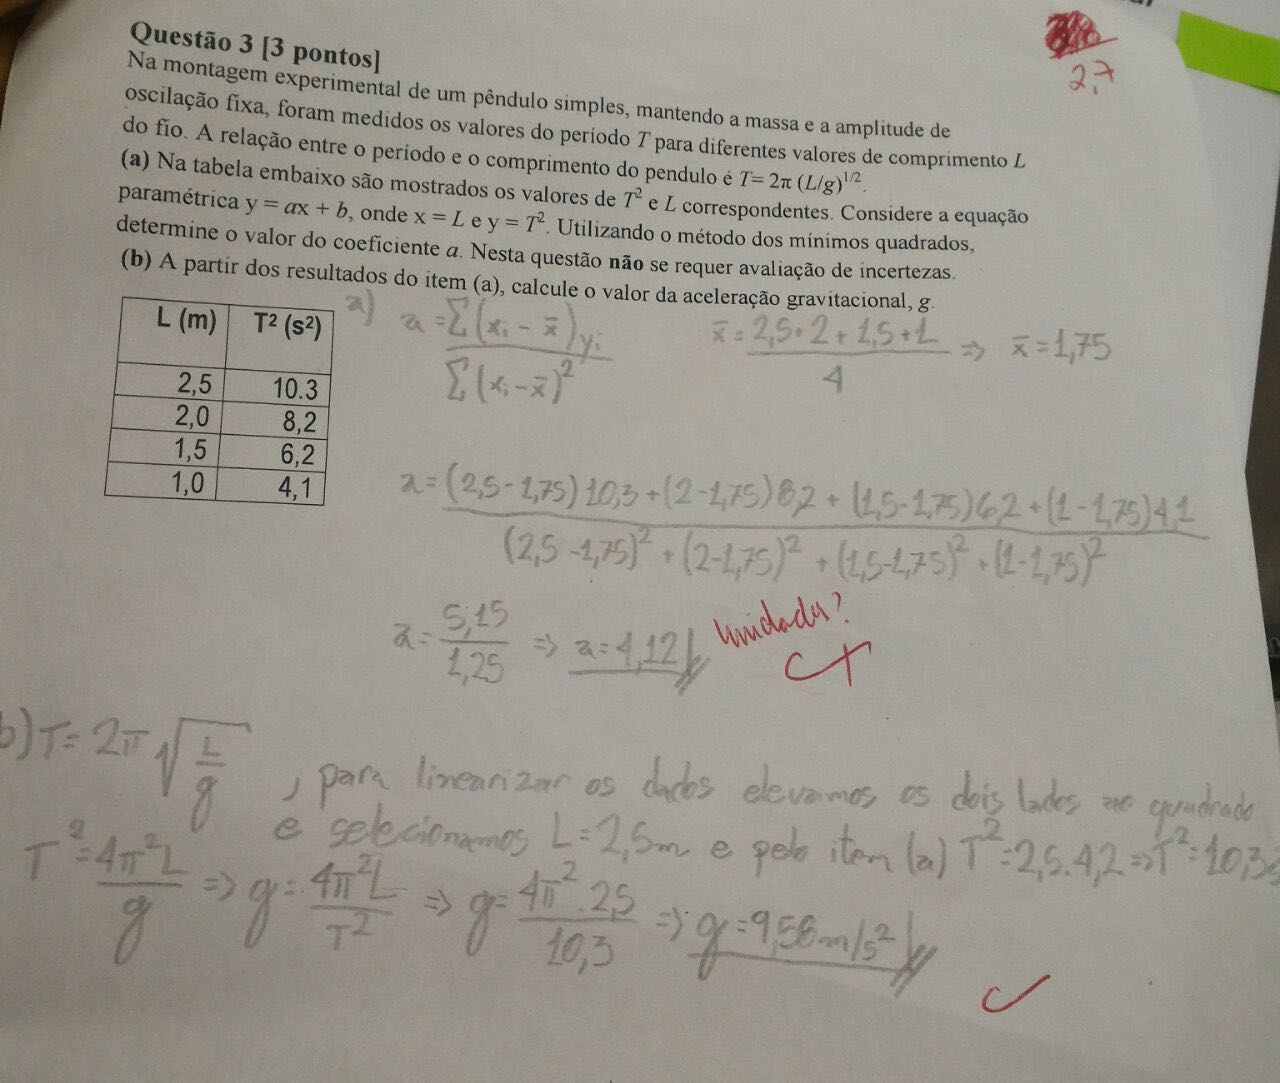 Questão 3 [3 pontos]
2,7
Na montagem experimental de um pêndulo simples, mantendo a massa e a amplitude de
oscilação fixa, foram medidos os valores do período T para diferentes valores de comprimento L
do fio. A relação entre o período e o comprimento do pendulo é T= 2π (L/g)^1/2.
(a) Na tabela embaixo são mostrados os valores de T² e L correspondentes. Considere a equação
paramétrica y = ax + b, onde x = L e y = T². Utilizando o método dos mínimos quadrados,
determine o valor do coeficiente a. Nesta questão não se requer avaliação de incertezas.
(b) A partir dos resultados do item (a), calcule o valor da aceleração gravitacional, g.
L (m) T² (s²)
2,5 10.3
2,0 8,2
1,5 6,2
1,0 4,1
a) a = Σ(xᵢ - x̄)yᵢ / Σ(xᵢ - x̄)²
x̄ = 2,5+2+1,5+1 / 4 => x̄ = 1,75
a = (2,5-1,75)10,3+(2-1,75)8,2 + (1,5-1,75)6,2 + (1-1,75)4,1 / (2,5-1,75)² + (2-1,75)² + (1,5-1,75)² + (1-1,75)²
a = 5,15 / 1,25 => a = 4,12
unidades?
b) T = 2π √(L/g) , para linearizar os dados elevamos os dois lados ao quadrado
e selecionamos L = 2,5m e pelo item (a) T² = 2,5.4,2 => T² = 10,3
T² = 4π²L / g => g = 4π²L / T² => g = 4π².2,5 / 10,3 => g = 9,58 m/s²